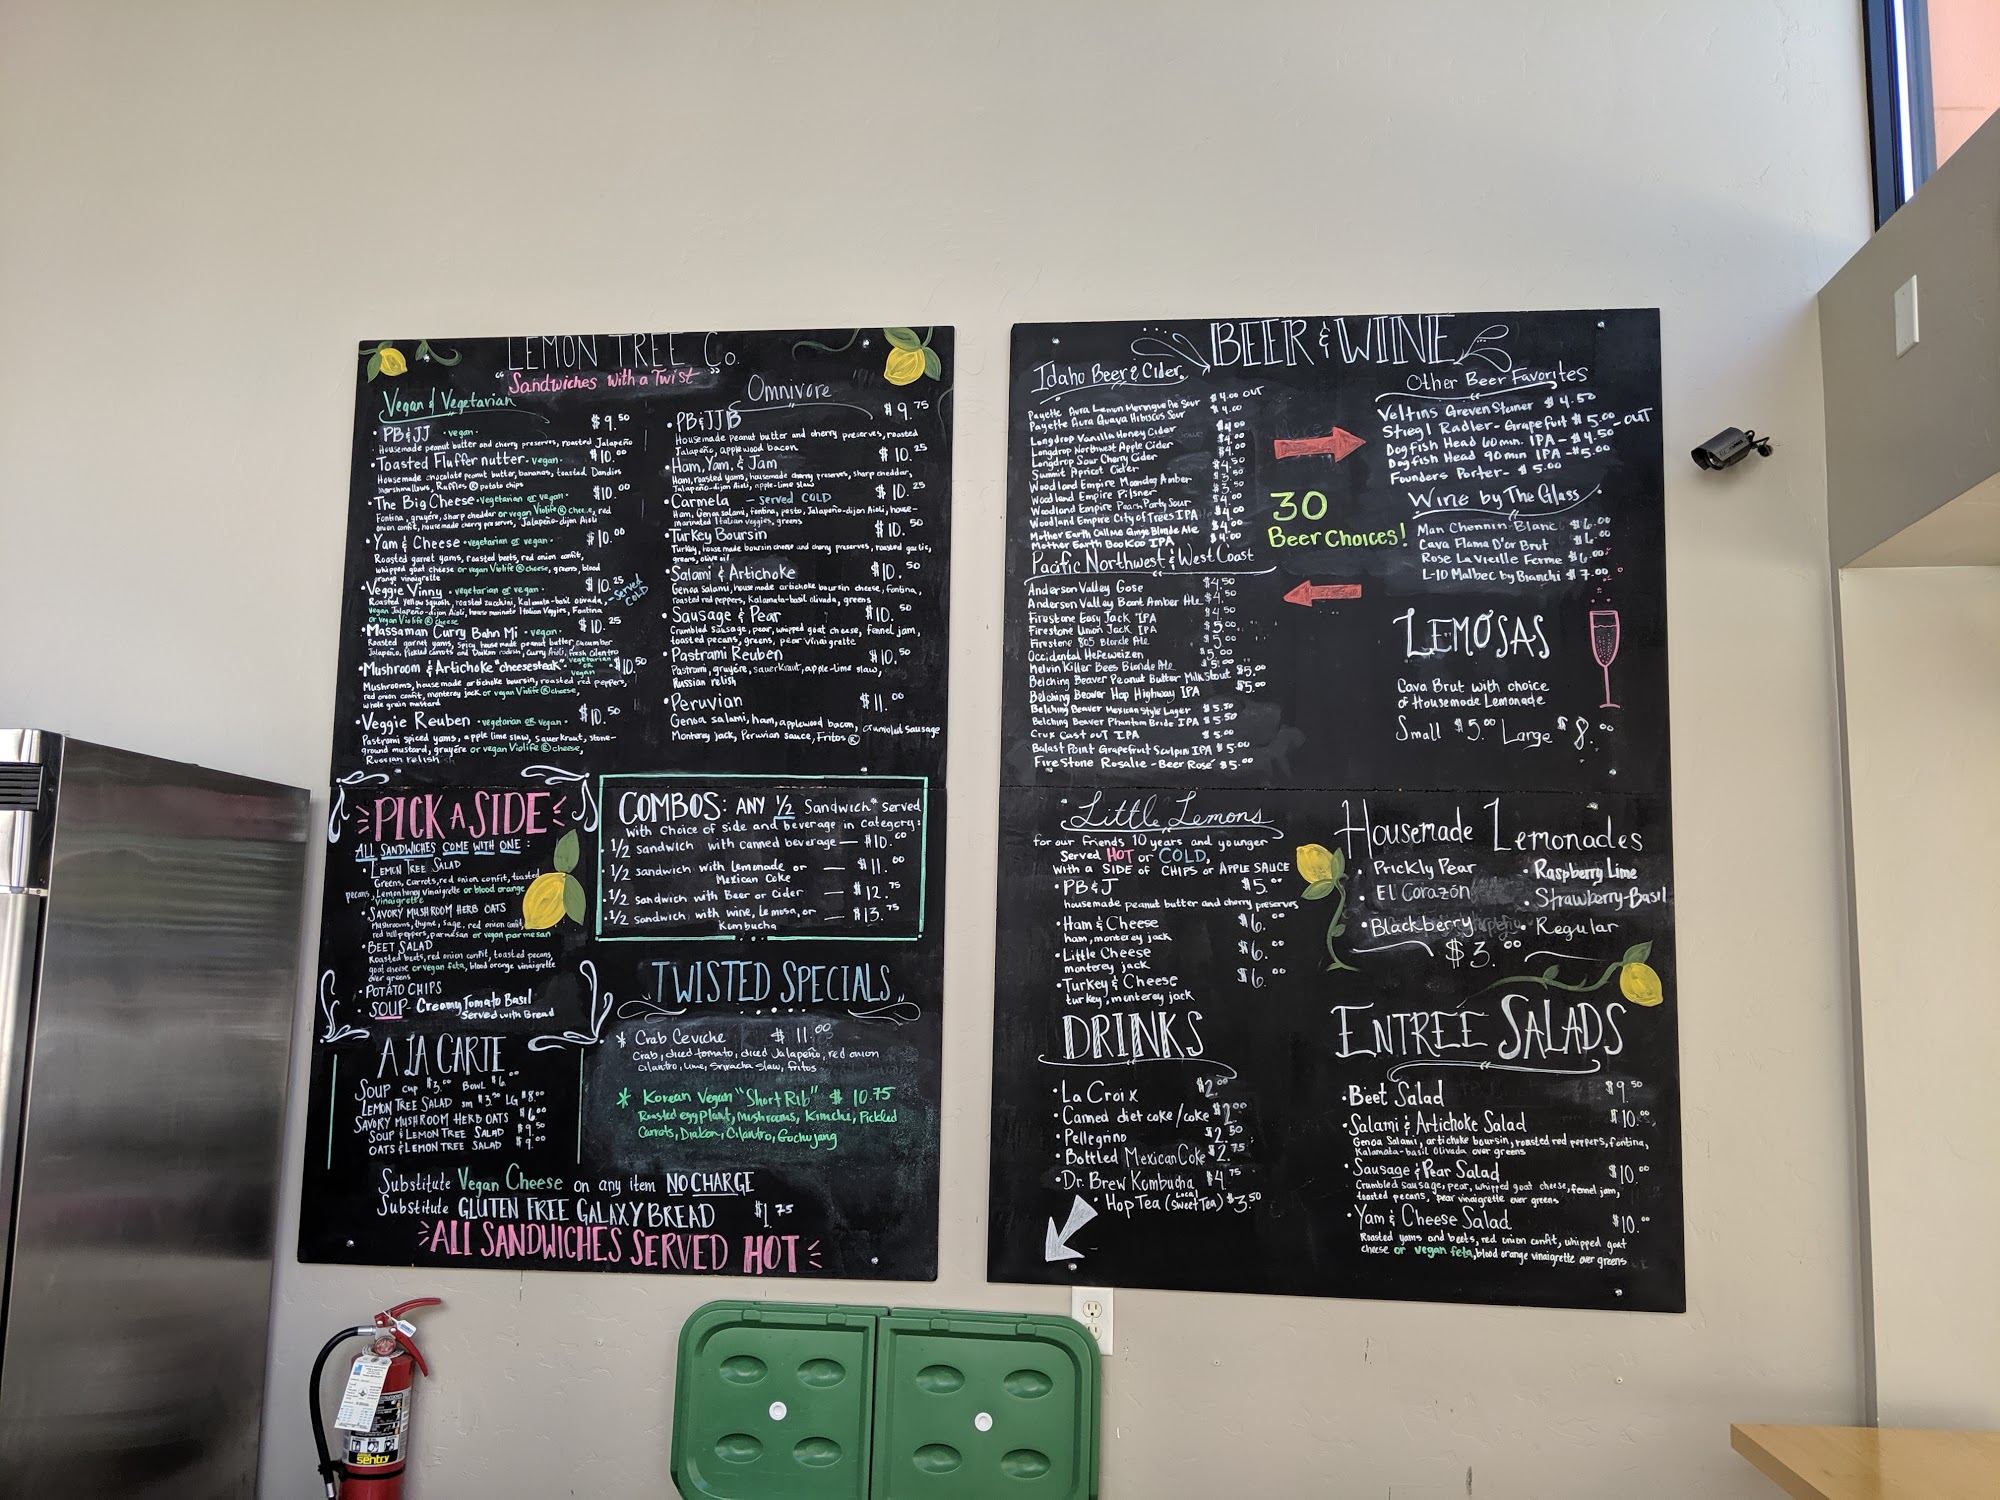 LEMON TREE Co.
"Sandwiches with a Twist"
Vegan & Vegetarian
• PB&JJ • vegan • $9.50
Housemade peanut butter and cherry preserves, roasted Jalapeño
• Toasted Fluffernutter • vegan • $10.00
Housemade chocolate peanut butter, bananas, toasted Dandies
marshmallows, Ruffles ® potato chips
• The Big Cheese • vegetarian or vegan • $10.00
Fontina, gruyére, sharp cheddar or vegan Violife ® cheese, red
onion confit, housemade cherry preserves, Jalapeño-dijon Aioli
• Yam & Cheese • vegetarian or vegan • $10.00
Roasted garnet yams, roasted beets, red onion confit,
whipped goat cheese or vegan Violife ® cheese, greens, blood
orange vinaigrette
• Veggie Vinny • vegetarian or vegan • $10.25 - Served COLD
Roasted Yellow squash, roasted zucchini, Kalamata-basil olivada,
vegan Jalapeño-dijon Aioli, house marinate Italian Veggies, Fontina
or vegan Violife ® cheese
• Massaman Curry Bahn Mi • vegan • $10.25
Roasted garnet yams, spicy housemade peanut butter, cucumber
Jalapeño, Pickled carrots and Daikon radish, Curry Aioli, fresh cilantro
• Mushroom & Artichoke "cheesesteak" • vegetarian or vegan $10.50
Mushrooms, housemade artichoke boursin, roasted red peppers,
red onion confit, monterey jack or vegan Violife ® cheese,
whole grain mustard
• Veggie Reuben • vegetarian or vegan • $10.50
Pastrami spiced yams, apple lime slaw, sauerkraut, stone-
ground mustard, gruyére or vegan Violife ® cheese,
Russian relish
Omnivore
• PB&JJB $9.75
Housemade peanut butter and cherry preserves, roasted
Jalapeño, applewood bacon
• Ham, Yam, & Jam $10.25
Ham, roasted yams, housemade cherry preserves, sharp cheddar,
Jalapeño-dijon Aioli, apple-lime slaw
• Carmela - served COLD $10.25
Ham, Genoa salami, fontina, pesto, Jalapeño-dijon Aioli, house-
marinated Italian veggies, greens
• Turkey Boursin $10.50
Turkey, house made boursin cheese and cherry preserves, roasted garlic,
greens, olive oil
• Salami & Artichoke $10.50
Genoa salami, housemade artichoke boursin cheese, fontina,
roasted red peppers, Kalamata-basil olivada, greens
• Sausage & Pear $10.50
Crumbled Sausage, pear, whipped goat cheese, fennel jam,
toasted pecans, greens, pear vinaigrette
• Pastrami Reuben $10.50
Pastrami, gruyére, sauerkraut, apple-lime slaw,
Russian relish
• Peruvian $11.00
Genoa salami, ham, applewood bacon, crumbled sausage
Monterey jack, Peruvian sauce, Fritos ®
PICK A SIDE
ALL SANDWICHES COME WITH ONE:
• LEMON TREE SALAD
Greens, Carrots, red onion confit, toasted
pecans, Lemon honey Vinaigrette or blood orange
vinaigrette
• SAVORY MUSHROOM HERB OATS
Mushrooms, thyme, sage, red onion confit,
red bell peppers, parmesan or vegan parmesan
• BEET SALAD
Roasted beets, red onion confit, toasted pecans,
goat cheese or vegan feta, blood orange vinaigrette
over greens
• POTATO CHIPS
• SOUP - Creamy Tomato Basil
Served with Bread
COMBOS: ANY 1/2 Sandwich* Served
With Choice of side and beverage in Category:
• 1/2 sandwich with canned beverage — $10.00
• 1/2 sandwich with Lemonade or Mexican Coke — $11.00
• 1/2 sandwich with Beer or Cider — $12.75
• 1/2 sandwich with wine, Lemosa, or Kombucha — $13.75
TWISTED SPECIALS
* Crab Ceviche $11.00
Crab, diced tomato, diced Jalapeño, red onion
cilantro, lime, Sriracha slaw, fritos
* Korean Vegan "Short Rib" $10.75
Roasted eggplant, mushrooms, Kimchi, Pickled
Carrots, Diakon, Cilantro, Gochujang
A LA CARTE
SOUP cup $3.00 Bowl $6.
LEMON TREE SALAD sm $3.50 LG $8.00
SAVORY MUSHROOM HERB OATS $6.00
SOUP & LEMON TREE SALAD $9.50
OATS & LEMON TREE SALAD $9.00
Substitute Vegan Cheese on any item NO CHARGE
Substitute GLUTEN FREE GALAXY BREAD $1.75
ALL SANDWICHES SERVED HOT
BEER & WINE
Idaho Beer & Cider
Payette Aura Lemon Meringue Pie Sour $4.00 OUT
Payette Aura Guava Hibiscus Sour $4.00
Longdrop Vanilla Honey Cider $4.00
Longdrop Northwest Apple Cider $4.00
Longdrop Sour Cherry Cider $4.00
Summit Apricot Cider $4.50
Woodland Empire Moonday Amber $3.50
Woodland Empire Pilsner $3.50
Woodland Empire Pears Party Sour $4.00
Woodland Empire City of Trees IPA $4.00
Mother Earth Call Me Ginger Blonde Ale $4.00
Mother Earth BooKoo IPA $4.00
Pacific Northwest & West Coast
Anderson Valley Gose $4.50
Anderson Valley Boont Amber Ale $4.50
Firestone Easy Jack IPA $4.50
Firestone Union Jack IPA $5.00
Firestone 805 Blonde Ale $5.00
Occidental Hefeweizen $5.00
Melvin Killer Bees Blonde Ale $5.00
Belching Beaver Peanut Butter Milk Stout $5.00
Belching Beaver Hop Highway IPA $5.00
Belching Beaver Mexican Style Lager $5.50
Belching Beaver Phantom Bride IPA $5.50
Crux Cast out IPA $5.00
Balast Point Grapefruit Sculpin IPA $5.00
Firestone Rosalie - Beer Rosé $5.00
30
Beer Choices!
Other Beer Favorites
Veltins Greven Steiner $4.50
Stiegl Radler - Grapefruit $5.00 - OUT
Dogfish Head 60 min. IPA - $4.50
Dogfish Head 90 min IPA - $5.00
Founders Porter - $5.00
Wine by The Glass
Man Chennin Blanc $6.00
Cava Flama D'or Brut $6.00
Rose La Vieille Ferme $6.00
L-10 Malbec by Bianchi $7.00
LEMOSAS
Cava Brut with choice
of Housemade Lemonade
Small $5.00 Large $8.00
Little Lemons
for our friends 10 years and younger
Served HOT or COLD,
with a SIDE of CHIPS or APPLE SAUCE
• PB&J $5.00
housemade peanut butter and cherry preserves
• Ham & Cheese $6.00
ham, monterey jack
• Little Cheese $6.00
monterey jack
• Turkey & Cheese $6.00
turkey, monterey jack
DRINKS
• La Croix $2.00
• Canned diet coke/coke $2.00
• Pellegrino $2.50
• Bottled Mexican Coke $2.75
• Dr. Brew Kombucha $4.75
• Hop Tea (Local sweet Tea) $3.50
Housemade Lemonades
• Prickly Pear
• El Corazón
• Blackberry
• Raspberry Lime
• Strawberry-Basil
• Regular
$3.00
ENTREE SALADS
• Beet Salad $9.50
• Salami & Artichoke Salad $10.00
Genoa Salami, artichoke boursin, roasted red peppers, fontina,
Kalamata-basil Olivada over greens
• Sausage & Pear Salad $10.00
Crumbled sausage, pear, whipped goat cheese, fennel jam,
toasted pecans, pear vinaigrette over greens
• Yam & Cheese Salad $10.00
Roasted yams and beets, red onion confit, whipped goat
cheese or vegan feta, blood orange vinaigrette over greens
sentry